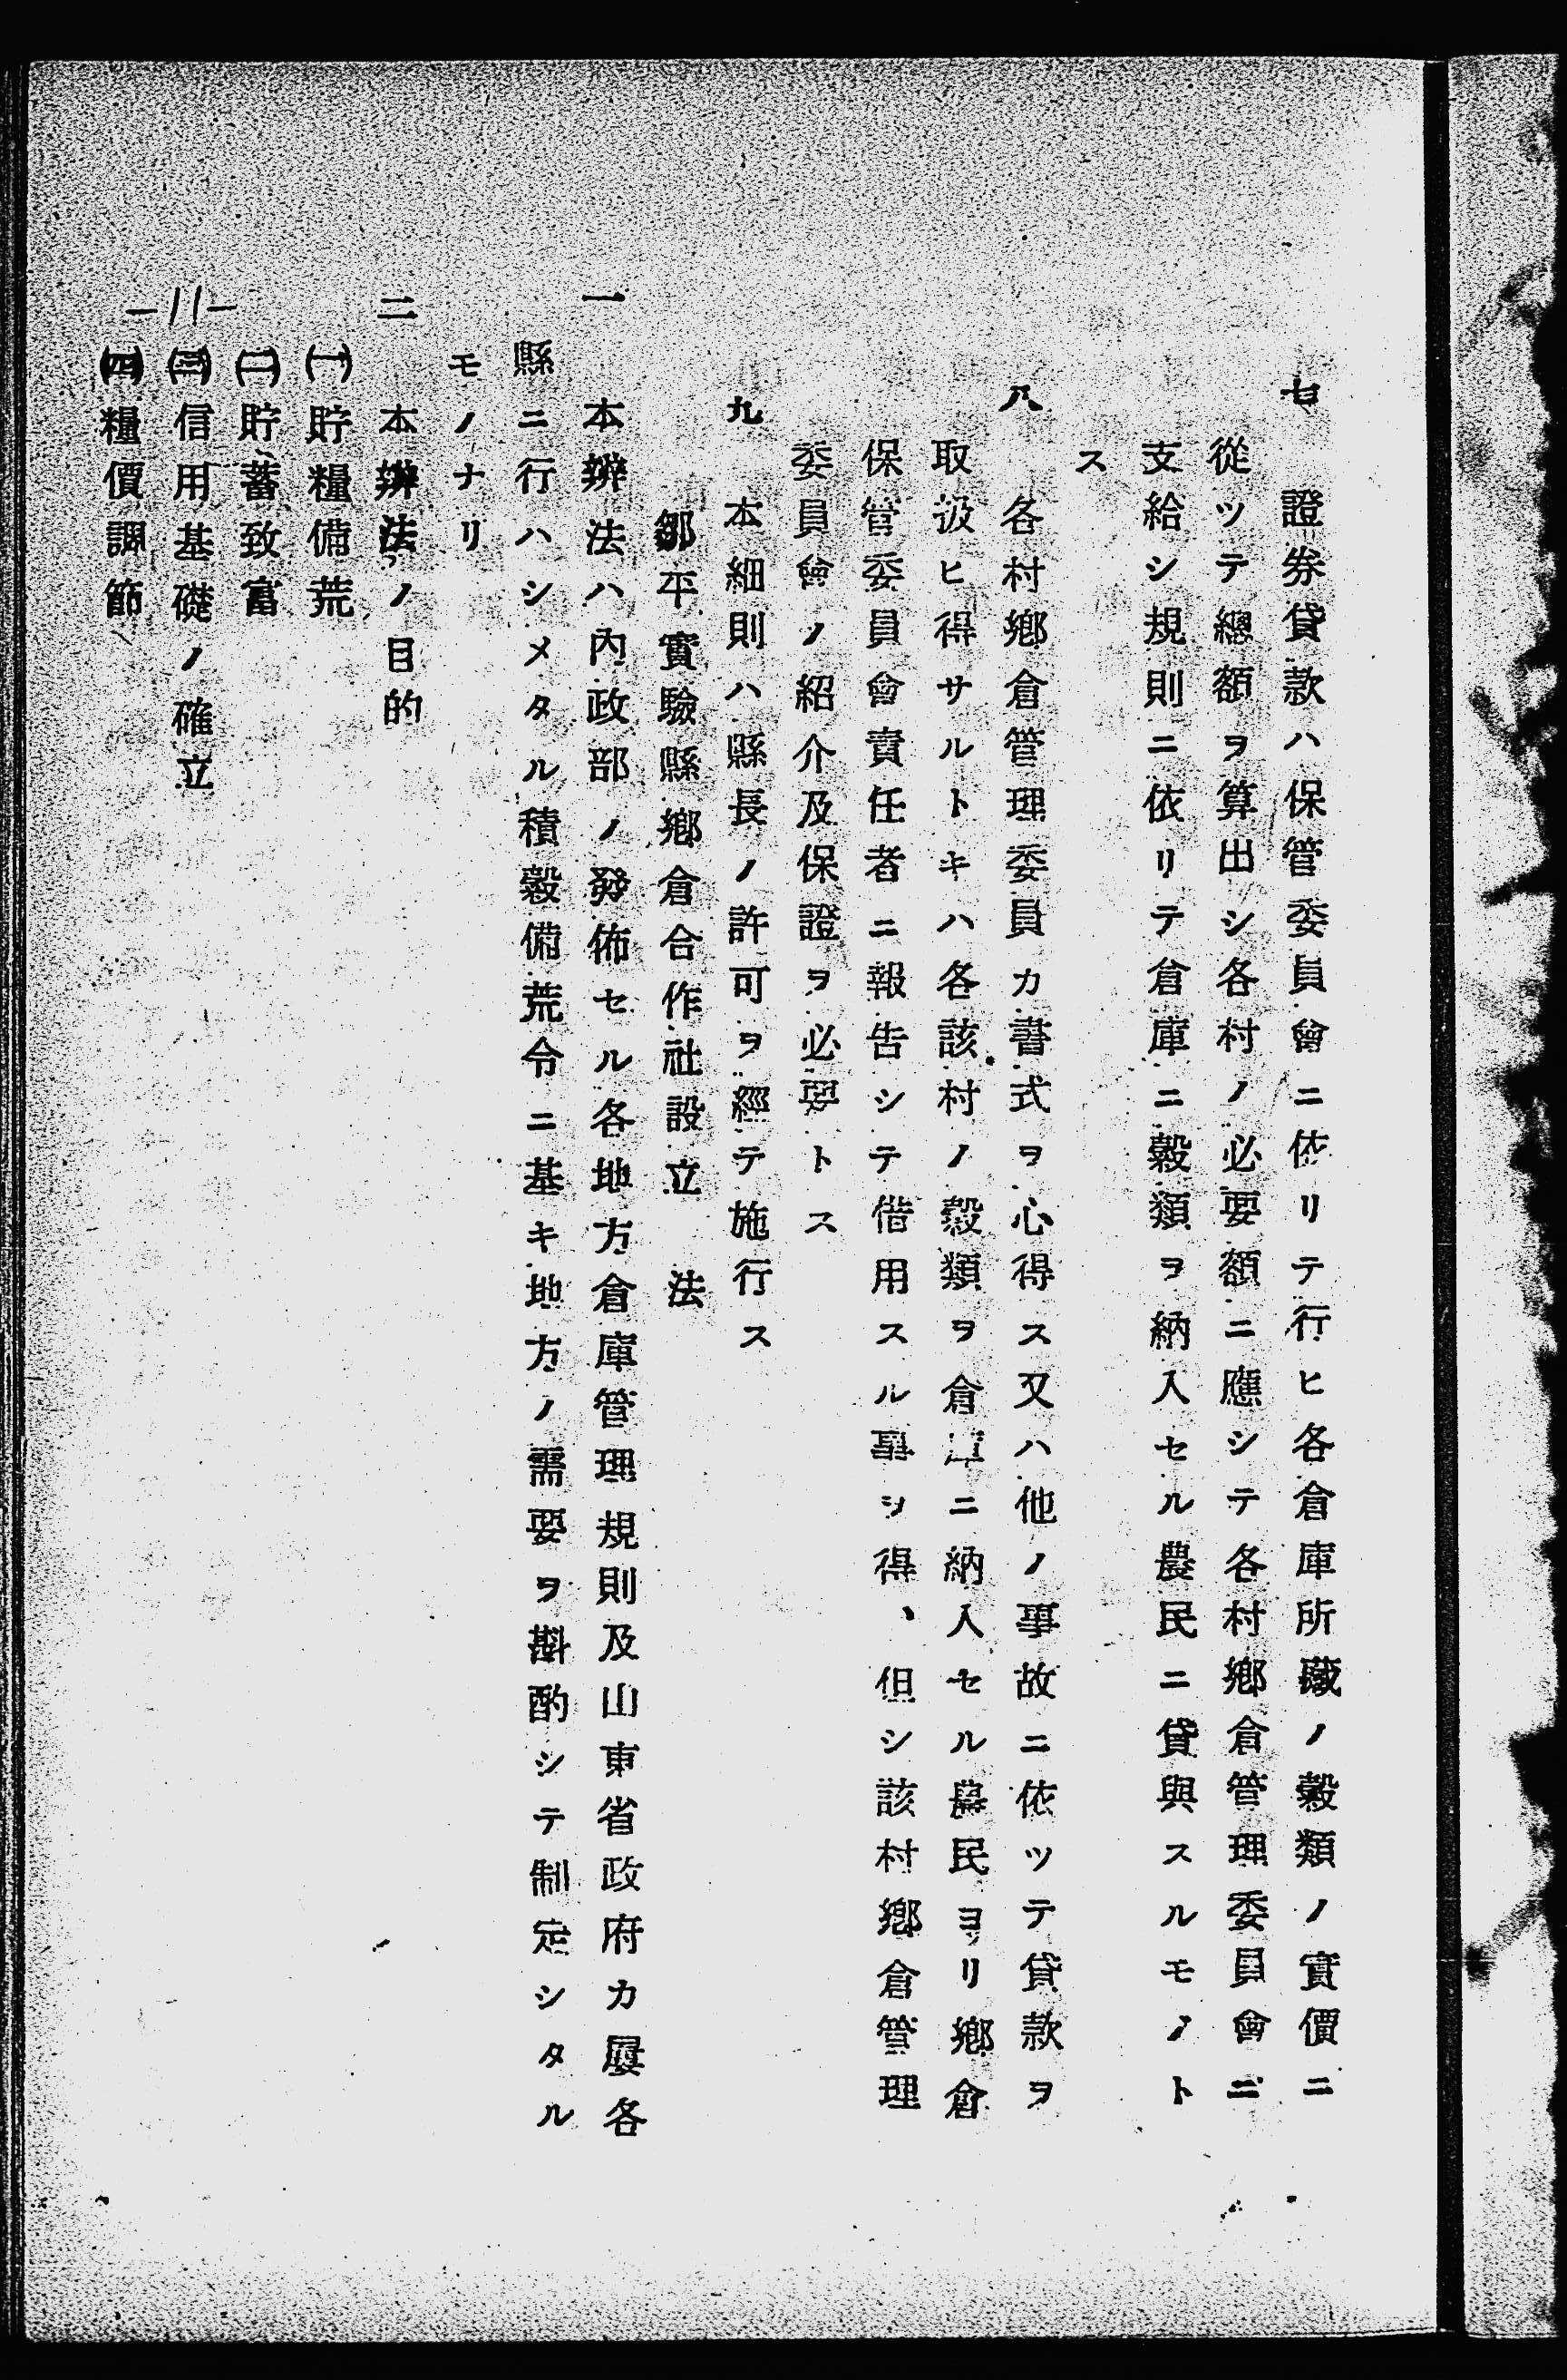 七　證券貸款ハ保管委員會ニ依リテ行ヒ各倉庫所藏ノ穀類ノ實價ニ
從ツテ總額ヲ算出シ各村ノ必要額ニ應シテ各村鄕倉管理委員會ニ
支給シ規則ニ依リテ倉庫ニ穀類ヲ納入セル農民ニ貸與スルモノト
ス
八　各村鄕倉管理委員カ書式ヲ心得ス又ハ他ノ事故ニ依ツテ貸款ヲ
取扱ヒ得サルトキハ各該村ノ穀類ヲ倉庫ニ納入セル農民ヨリ鄕倉
保管委員會責任者ニ報告シテ借用スル事ヲ得、但シ該村鄕倉管理
委員會ノ紹介及保證ヲ必要トス
九　本細則ハ縣長ノ許可ヲ經テ施行ス
鄒平實驗縣鄕倉合作社設立　法
一　本辨法ハ內政部ノ發佈セル各地方倉庫管理規則及山東省政府カ屢各
縣ニ行ハシメタル積穀備荒令ニ基キ地方ノ需要ヲ斟酌シテ制定シタル
モノナリ
二　本辨法ノ目的
㈠貯糧備荒
㈡貯蓄致富
㈢信用基礎ノ確立
㈣糧價調節
—11—